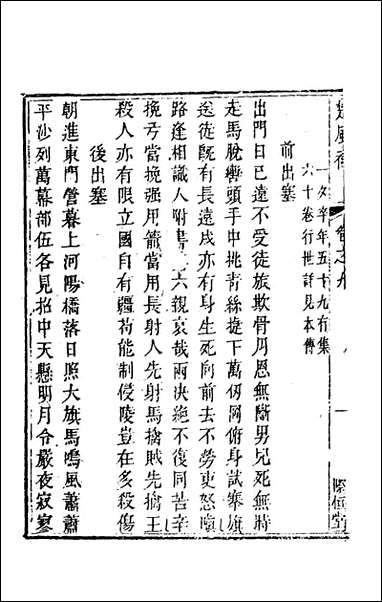 楚風補 卷之九 一
一夕卒年五十九有集
六十卷行世詳見本傳
前出塞
出門日已遠不受徒旅欺骨肉恩無斷男兒死無時
走馬脫轡頭手中挑青絲捷下萬仞岡俯身試搴旗
送徒既有長遠戍亦有身生死向前去不勞吏怒嗔
路逢相識人附書與六親哀哉兩決絶不復同苦辛
挽弓當挽强用箭當用長射人先射馬擒賊先擒王
殺人亦有限立國自有疆苟能制侵陵豈在多殺傷
後出塞
朝進東門營暮上河陽橋落日照大旗馬鳴風蕭蕭
平沙列萬幕部伍各見招中天懸明月令嚴夜寂寥